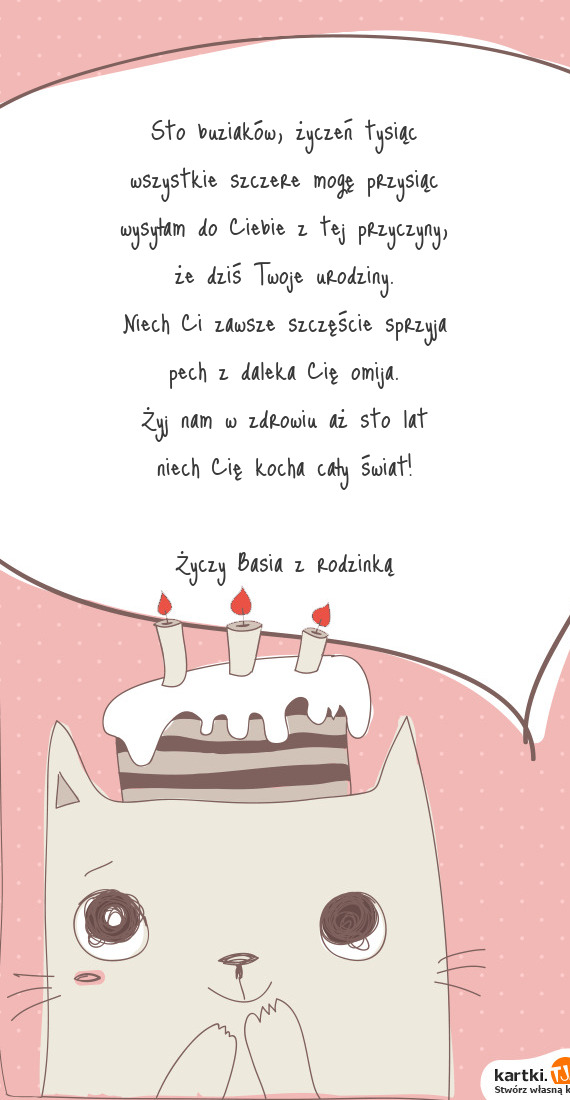 Sto buziaków, życzeń tysiąc
wszystkie szczere mogę przysiąc
wysyłam do Ciebie z tej przyczyny,
że dziś Twoje urodziny.
Niech Ci zawsze szczęście sprzyja
pech z daleka Cię omija.
Żyj nam w zdrowiu aż sto lat
niech Cię kocha cały świat!
Życzy Basia z rodzinką
kartki.TJ
Stwórz własną k